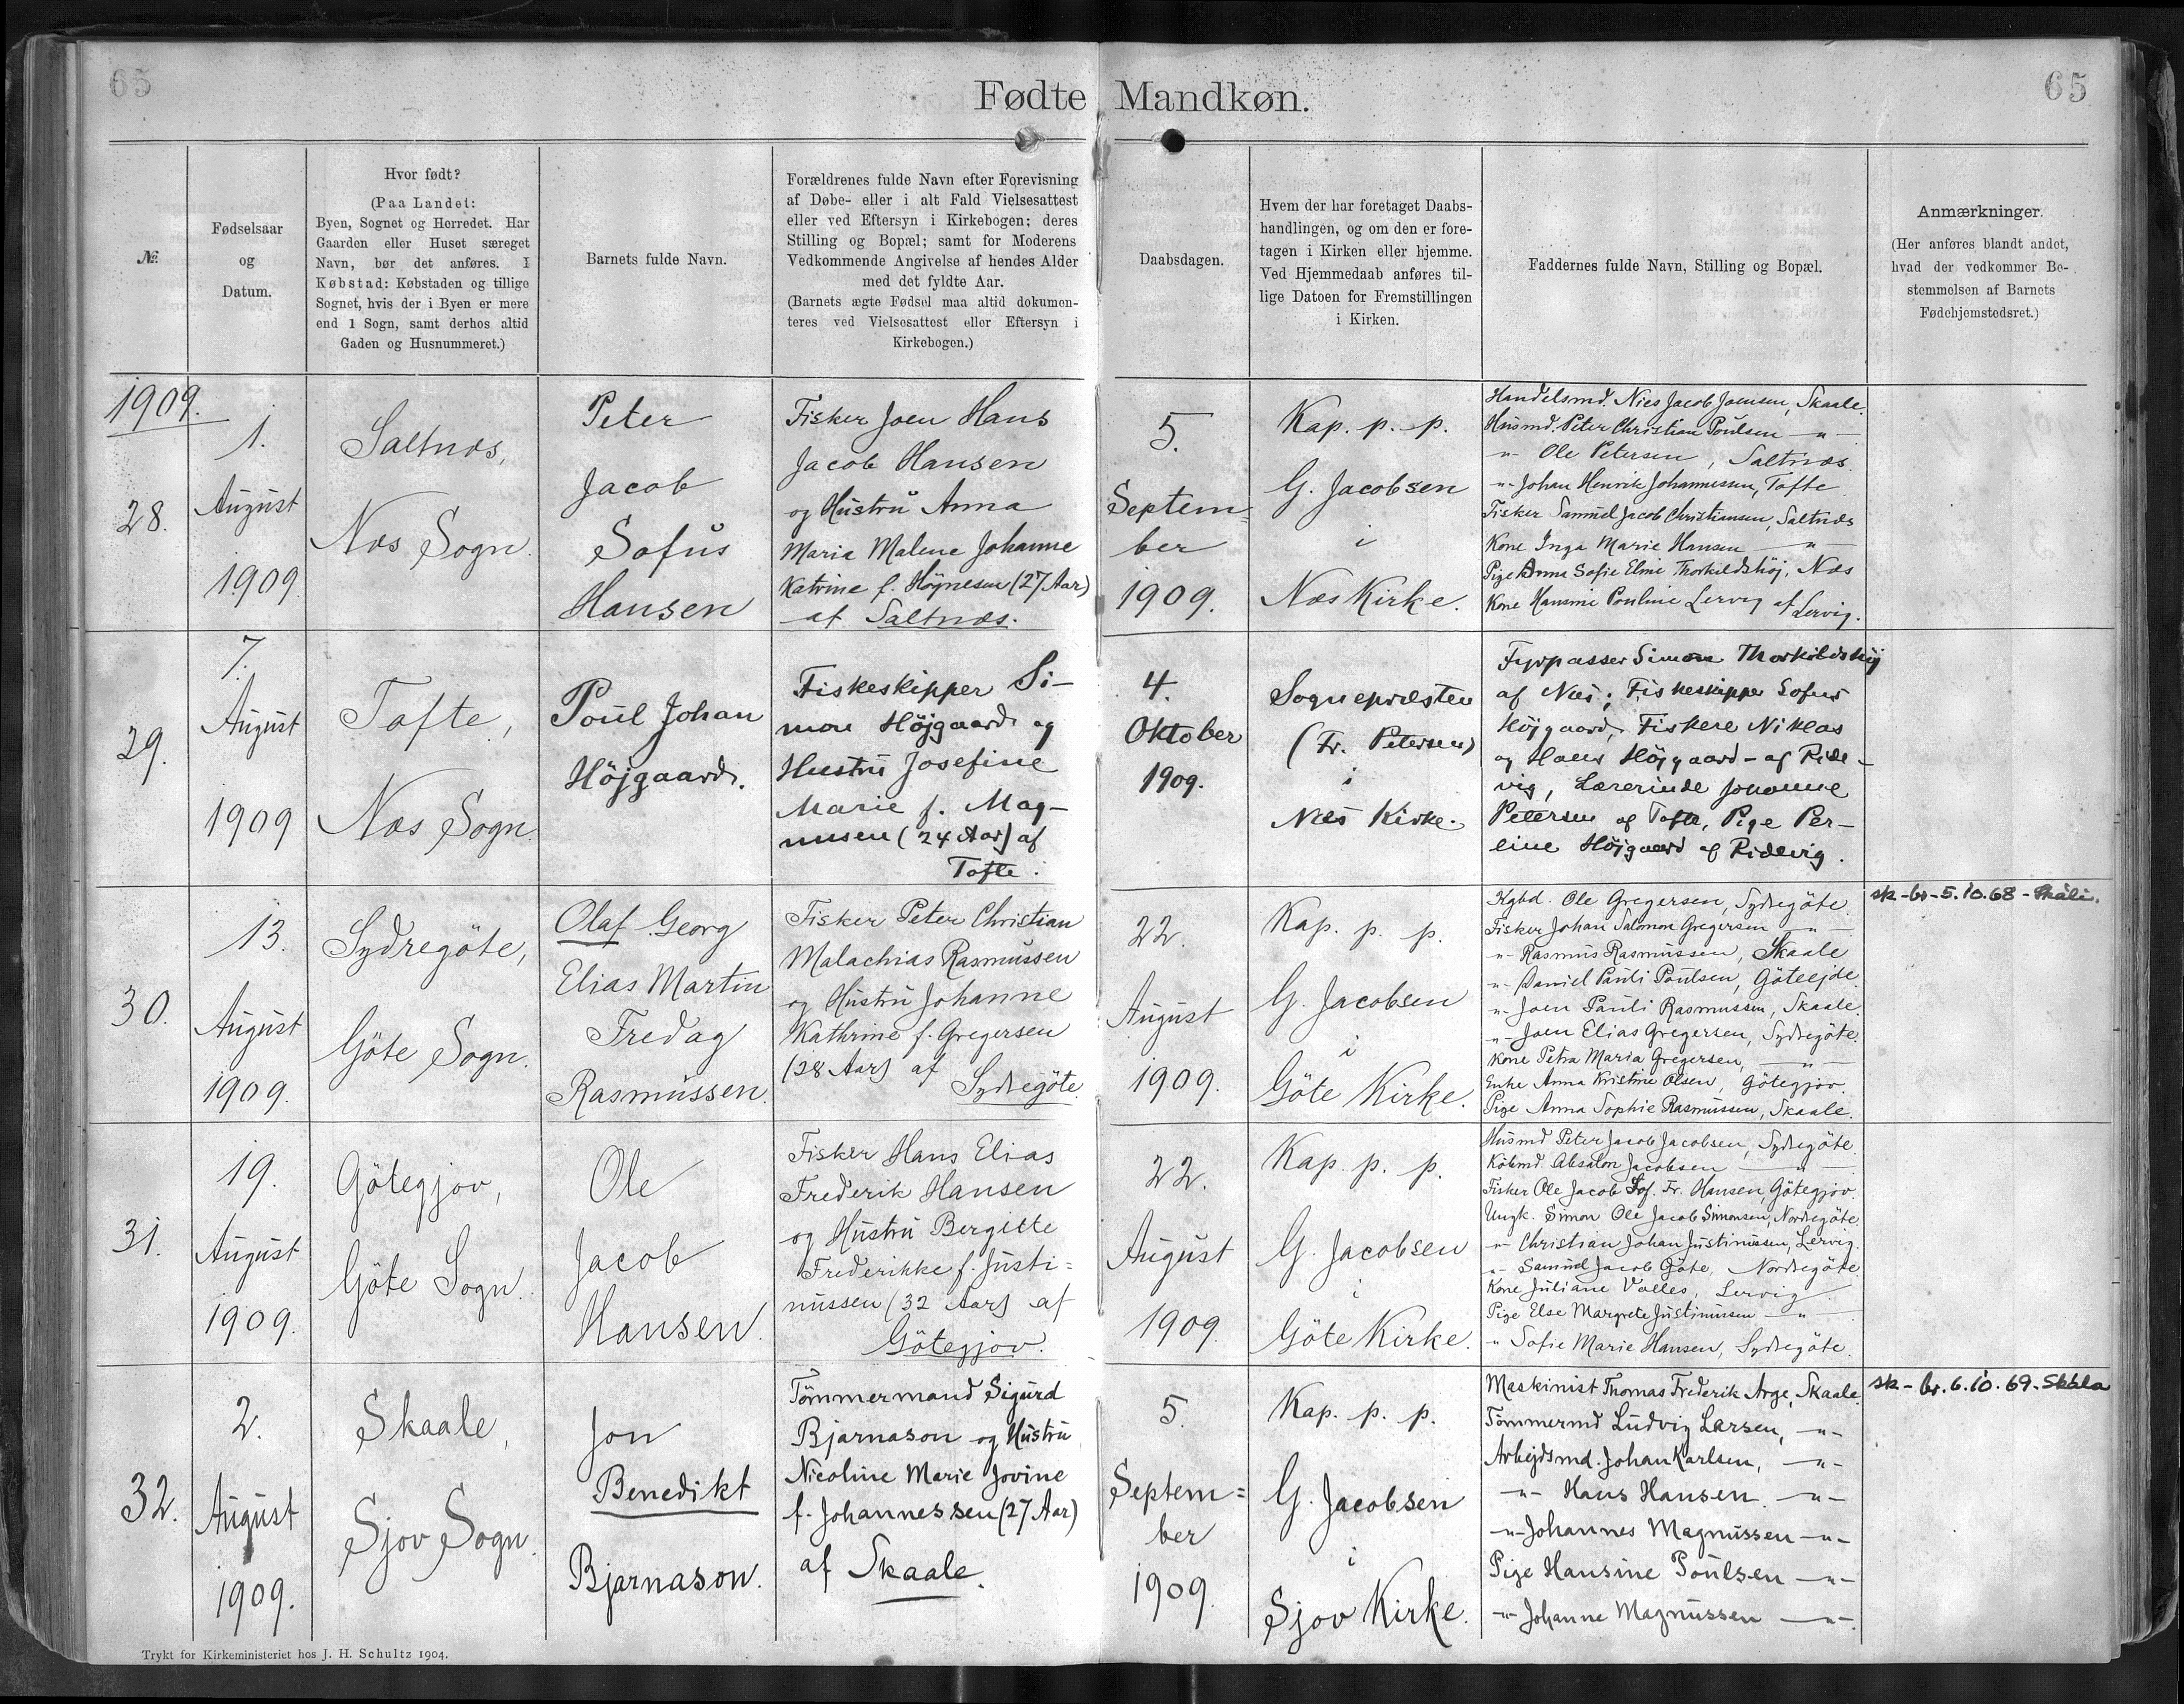 65
Fødte Mandkøn.
65
№
Fødselsaar
og
Datum.
Hvor født?
(Paa Landet:
Byen, Sognet og Herredet. Har
Gaarden eller Huset særeget
Navn, bør det anføres. I
Købstad: Købstaden og tillige
Sognet, hvis der i Byen er mere
end 1 Sogn, samt derhos altid
Gaden og Husnummeret.)
Barnets fulde Navn.
Forældrenes fulde Navn efter Forevisning
af Døbe- eller i alt Fald Vielsesattest
eller ved Eftersyn i Kirkebogen; deres
Stilling og Bopæl; samt for Moderens
Vedkommende Angivelse af hendes Alder
med det fyldte Aar.
(Barnets ægte Fødsel maa altid dokumen-
teres ved Vielsesattest eller Eftersyn i
Kirkebogen.)
Daabsdagen.
Hvem der har foretaget Daabs-
handlingen, og om den er fore-
tagen i Kirken eller hjemme.
Ved Hjemmedaab anføres til-
lige Datoen for Fremstillingen
i Kirken.
Faddernes fulde Navn, Stilling og Bopæl.
Anmærkninger.
(Her anføres blandt andet,
hvad der vedkommer Be-
stemmelsen af Barnets
Fødehjemstedsret.)
1909.
28.
1.
August
1909.
Saltnæs,
Næs Sogn.
Peter
Jacob
Sofus
Hansen
Fisker Joen Hans
Jacob Hansen
og Hustru Anna
Maria Malene Johanne
Katrine f. Högnesen (27 Aar)
af Saltnæs.
5.
Septem=
ber
1909.
Kap. p. p.
G. Jacobsen
i
Næs Kirke.
Handelsmd. Nies Jacob Joensen, Skaale.
Husmd. Peter Christian Poulsen -"-
-"- Ole Petersen, Saltnæs.
-"- Johan Henrik Johannessen, Tofte
Fisker Samuel Jacob Christiansen, Saltnæs
Kone Inga Marie Hansen -"-
Pige Anna Sofie Eline Thorkildshöj, Næs
Kone Hansine Pouline Lervig af Lervig.
29.
7.
August
1909
Tofte,
Næs Sogn.
Poul Johan
Höjgaard.
Fiskeskipper Si-
mon Höjgaard og
Hustru Josefine
Marie f. Mag-
nusen (24 Aar) af
Tofte.
4.
Oktober
1909.
Sognepræsten
(Fr. Petersen)
i
Næs Kirke.
Fyrpasser Simon Thorkildshöj
af Næs; Fiskeskipper Sofus
Höjgaard, Fiskere Niklas
og Hans Höjgaard - af Ride-
vig, Lærerinde Johanne
Petersen af Tofte, Pige Per-
line Höjgaard af Ridevig.
30.
13.
August
1909.
Sydregöte,
Göte Sogn.
Olaf Georg
Elias Martin
Fredag
Rasmussen.
Fisker Peter Christian
Malachias Rasmussen
og Hustru Johanne
Kathrine f. Gregersen
(28 Aar) af
Sydregöte.
22.
August
1909.
Kap. p. p.
G. Jacobsen
i
Göte Kirke.
Kgbd. Ole Gregersen, Sydregöte.
Fisker Johan Salomon Gregersen -"-
-"- Rasmus Rasmussen, Skaale
-"- Daniel Pauli Poulsen, Göteejde.
-"- Joen Pauli Rasmussen, Skaale.
-"- Joen Elias Gregersen, Sydregöte.
Kone Petra Maria Gregersen, -"-
Enke Anna Kristine Olsen, Götegjov.
Pige Anna Sophie Rasmussen, Skaale.
sk-br-5.10.68-Skáli.
31.
19.
August
1909.
Götegjov,
Göte Sogn.
Ole
Jacob
Hansen.
Fisker Hans Elias
Frederik Hansen
og Hustru Bergitte
Frederikke f. Justi=
nussen (32 Aar) af
Götegjov.
22.
August
1909.
Kap. p. p.
G. Jacobsen
i
Göte Kirke.
Husmd Peter Jacob Jacobsen, Sydregöte.
Köbmd. Absalon Jacobsen -"-
Fisker Ole Jacob Sof. Fr. Hansen, Götegjov.
Ungk. Simon Ole Jacob Simonsen, Nordregöte.
-"- Christian Johan Justinussen, Lervig.
-"- Samuel Jacob Göte, Nordregöte
Kone Juliane Volles, Lervig.
Pige Else Margrete Justinussen -"-
" Sofie Marie Hansen, Sydregöte.
32.
2.
August
1909.
Skaale,
Sjov Sogn.
Jon
Benedikt
Bjarnason.
Tömmermand Sigurd
Bjarnason og Hustru
Nicoline Marie Jovine
f. Johannessen (27 Aar)
af Skaale.
5.
Septem=
ber
1909.
Kap. p. p.
G. Jacobsen
i
Sjov Kirke.
Maskinist Thomas Frederik Arge, Skaale.
Tömmermd Ludvig Larsen, -"-
Arbejdsmd. Johan Karlsen, -"-
-"- Hans Hansen. -"-
-"- Johannes Magnussen -"-
Pige Hansine Poulsen -"-
-"- Johanne Magnussen -"-
sk-br.6.10.69-Skála
Trykt for Kirkeministeriet hos J. H. Schultz 1904.